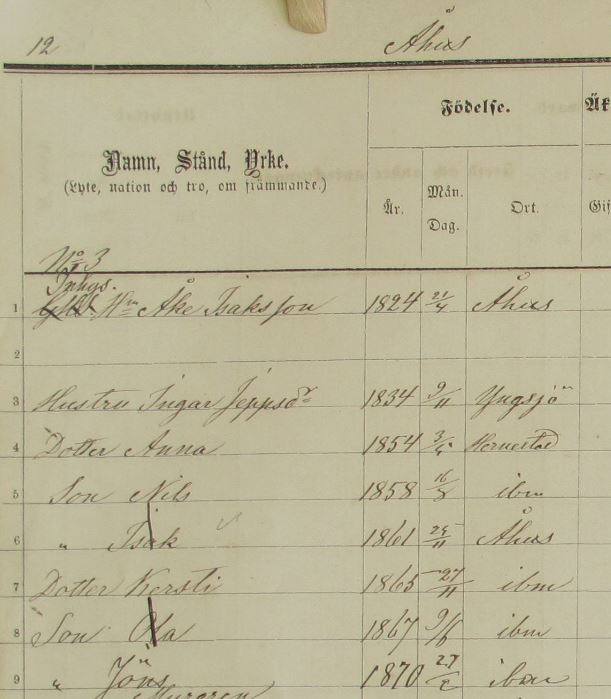 12 Åhus
Födelse. Äk
Namn, Stånd, Yrke.
(Lyte, nation och tro, om främmande.)
År. Mån. Dag. Ort. Gif
No 3
Inhys.
1 Hm Åke Isaksson 1824 21/4 Åhus
2
3 Hustru Ingar Jeppsdr 1834 9/11 Yngsjö
4 Dotter Anna 1854 Hernestad
5 Son Nils 1858 16/8 ibm
6 " Isak 1861 /11 Åhus
7 Dotter Kersti 1865 27/11 ibm
8 Son Ola 1867 9/6 ibm
9 " Jöns 1870 27/2 ibm
Murgren